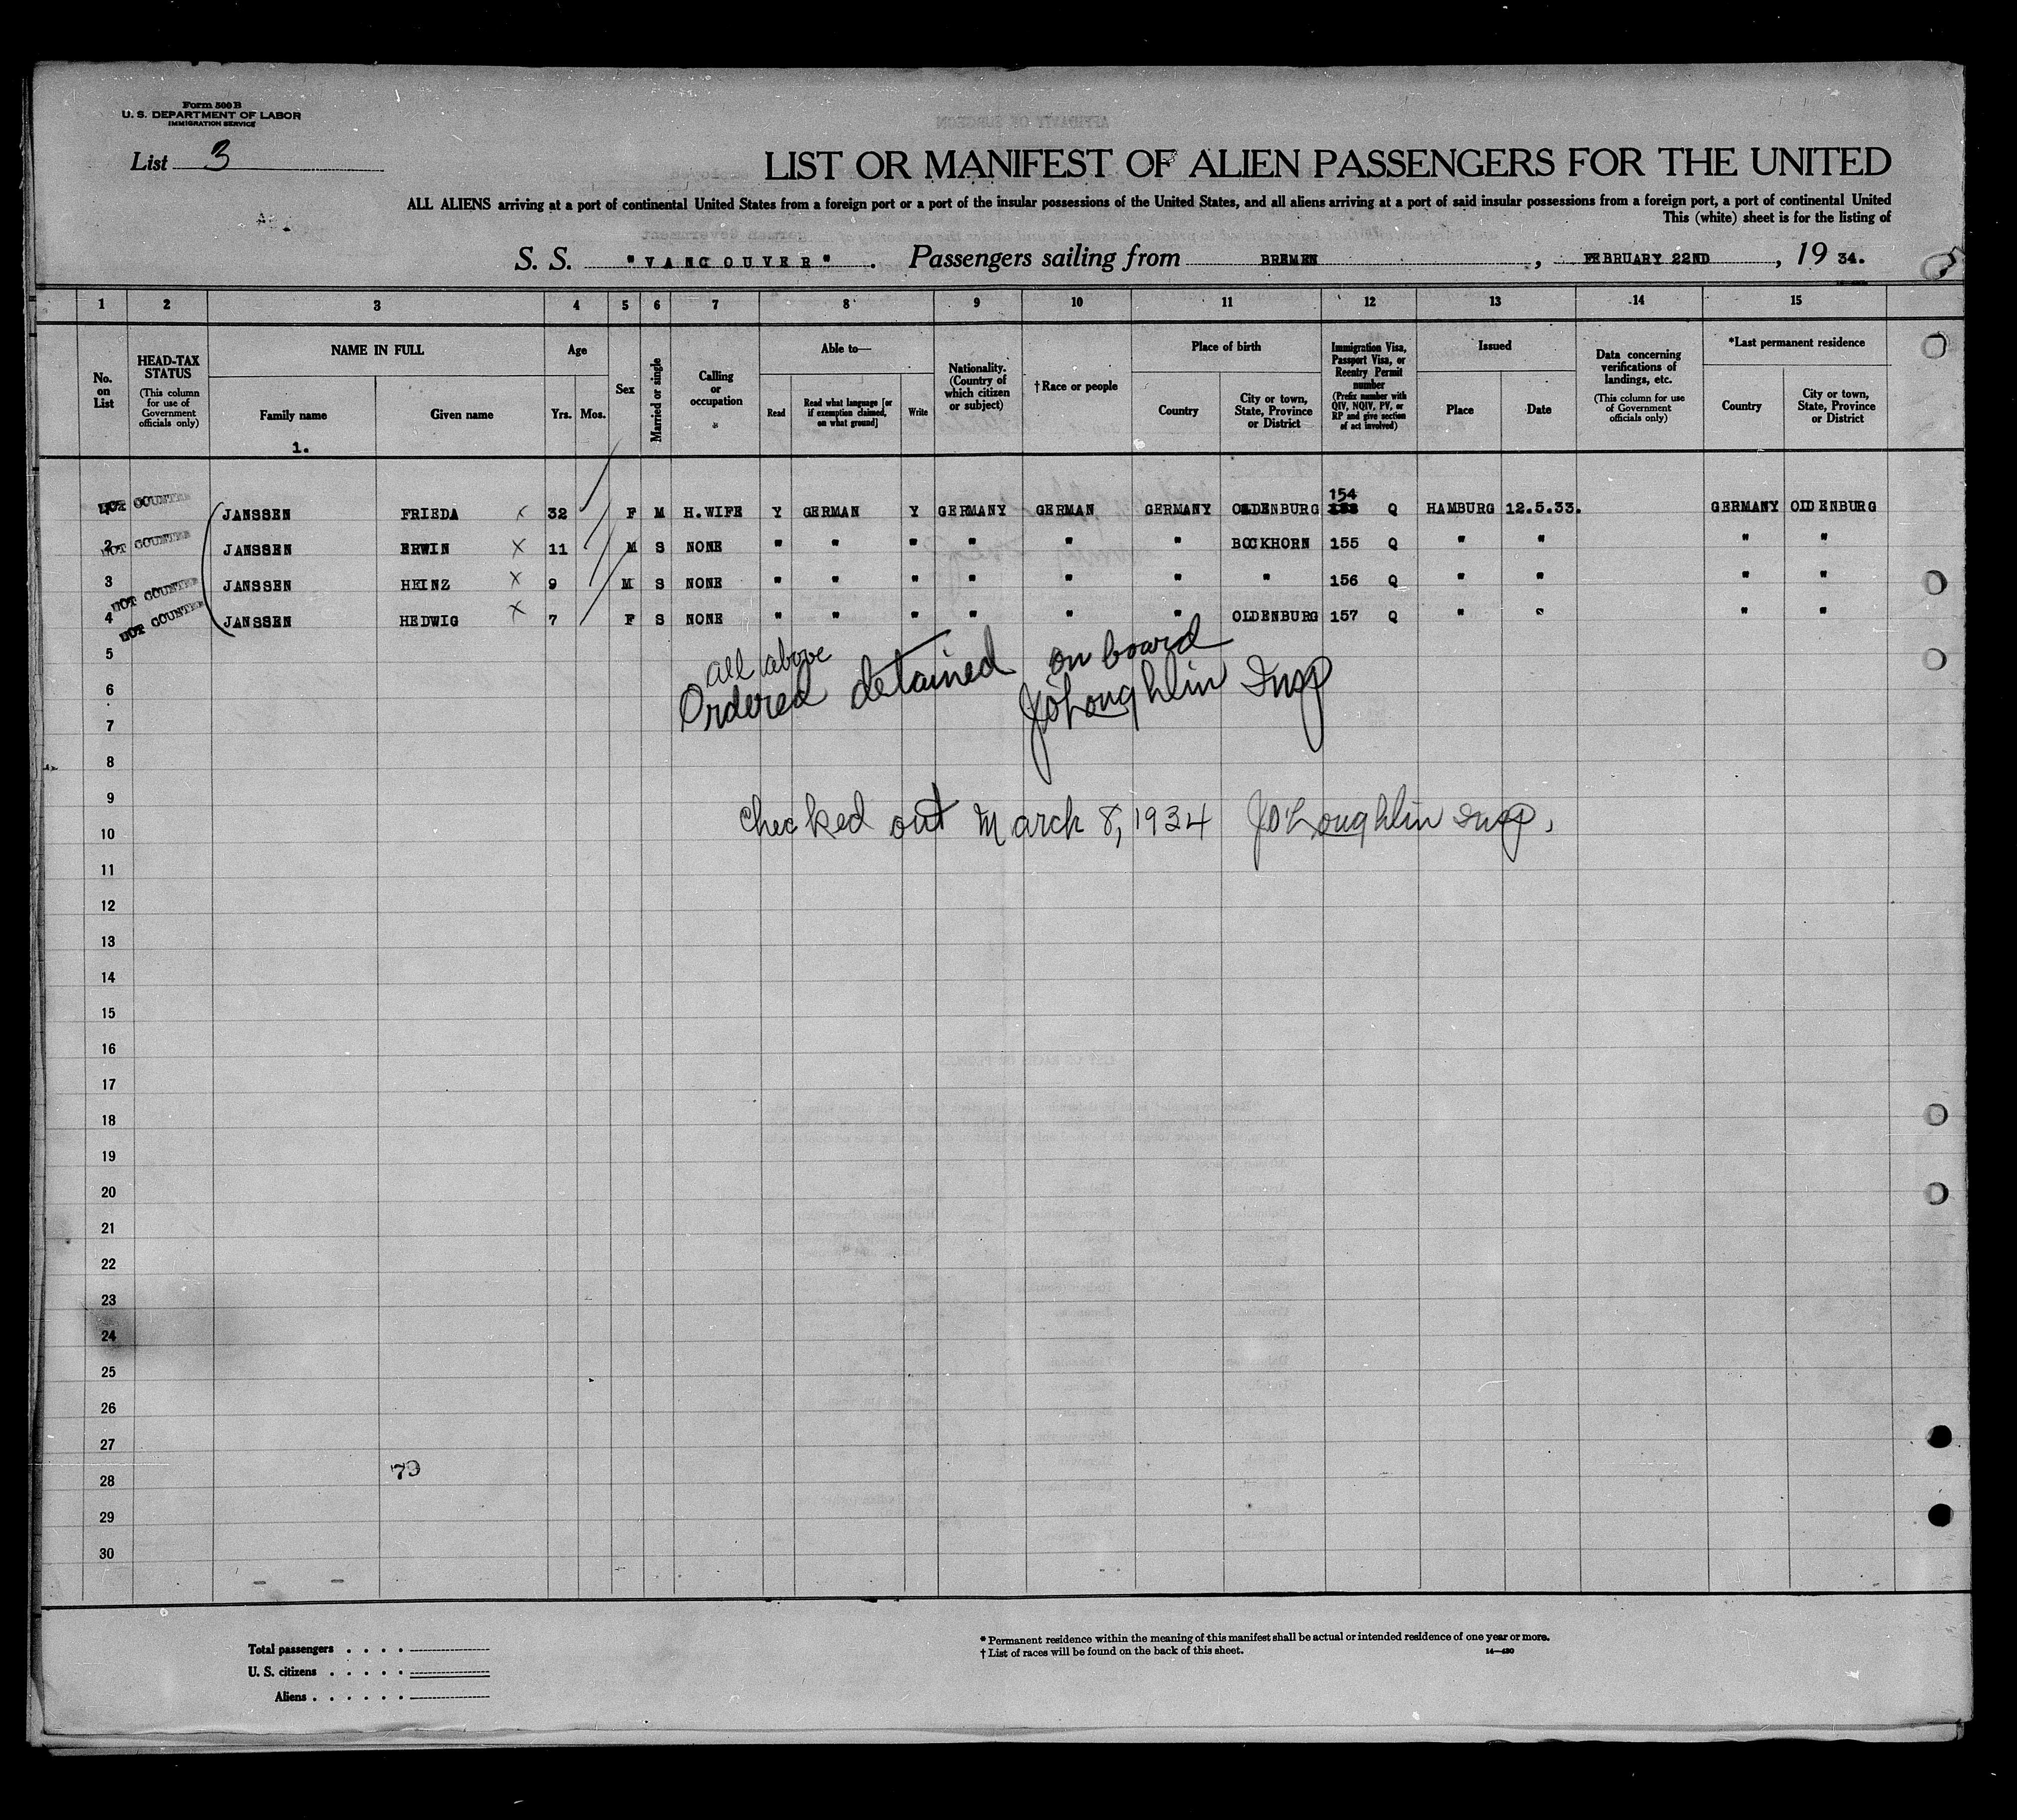 Form 500 B
U. S. DEPARTMENT OF LABOR
IMMIGRATION SERVICE
List 3
LIST OR MANIFEST OF ALIEN PASSENGERS FOR THE UNITED
ALL ALIENS arriving at a port of continental United States from a foreign port or a port of the insular possessions of the United States, and all aliens arriving at a port of said insular possessions from a foreign port, a port of continental United
This (white) sheet is for the listing of
S. S. "VANCOUVER". Passengers sailing from BREMEN, FEBRUARY 22ND, 19 34.
1 2 3 4 5 6 7 8 9 10 11 12 13 14 15
No. on List
HEAD-TAX STATUS (This column for use of Government officials only)
NAME IN FULL
Family name
1.
Given name
Age
Yrs. Mos.
Sex
Married or single
Calling or occupation
Able to—
Read
Read what language [or if exemption claimed, on what ground]
Write
Nationality. (Country of which citizen or subject)
†Race or people
Place of birth
Country
City or town, State, Province or District
Immigration Visa, Passport Visa, or Reentry Permit number (Prefix number with QIV, NQIV, PV, or RP and give section of act involved)
Issued
Place
Date
Data concerning verifications of landings, etc. (This column for use of Government officials only)
*Last permanent residence
Country
City or town, State, Province or District
154
NOT COUNTED JANSSEN FRIEDA x 32 F M H.WIFE Y GERMAN Y GERMANY GERMAN GERMANY OLDENBURG Q HAMBURG 12.5.33. GERMANY OLDENBURG
2 NOT COUNTED JANSSEN ERWIN X 11 M S NONE " " " " " " BOCKHORN 155 Q " " " "
3 NOT COUNTED JANSSEN HEINZ X 9 M S NONE " " " " " " " 156 Q " " " "
4 NOT COUNTED JANSSEN HEDWIG X 7 F S NONE " " " " " " OLDENBURG 157 Q " " " "
5
all above
6
Ordered detained on board
JO'Loughlin Insp
7
8
9
checked out March 8, 1934 JO'Loughlin Insp.
10
11
12
13
14
15
16
17
18
19
20
21
22
23
24
25
26
27
79
28
29
30
Total passengers . . . .
U. S. citizens . . . . .
Aliens . . . . . .
* Permanent residence within the meaning of this manifest shall be actual or intended residence of one year or more.
† List of races will be found on the back of this sheet.
14—430